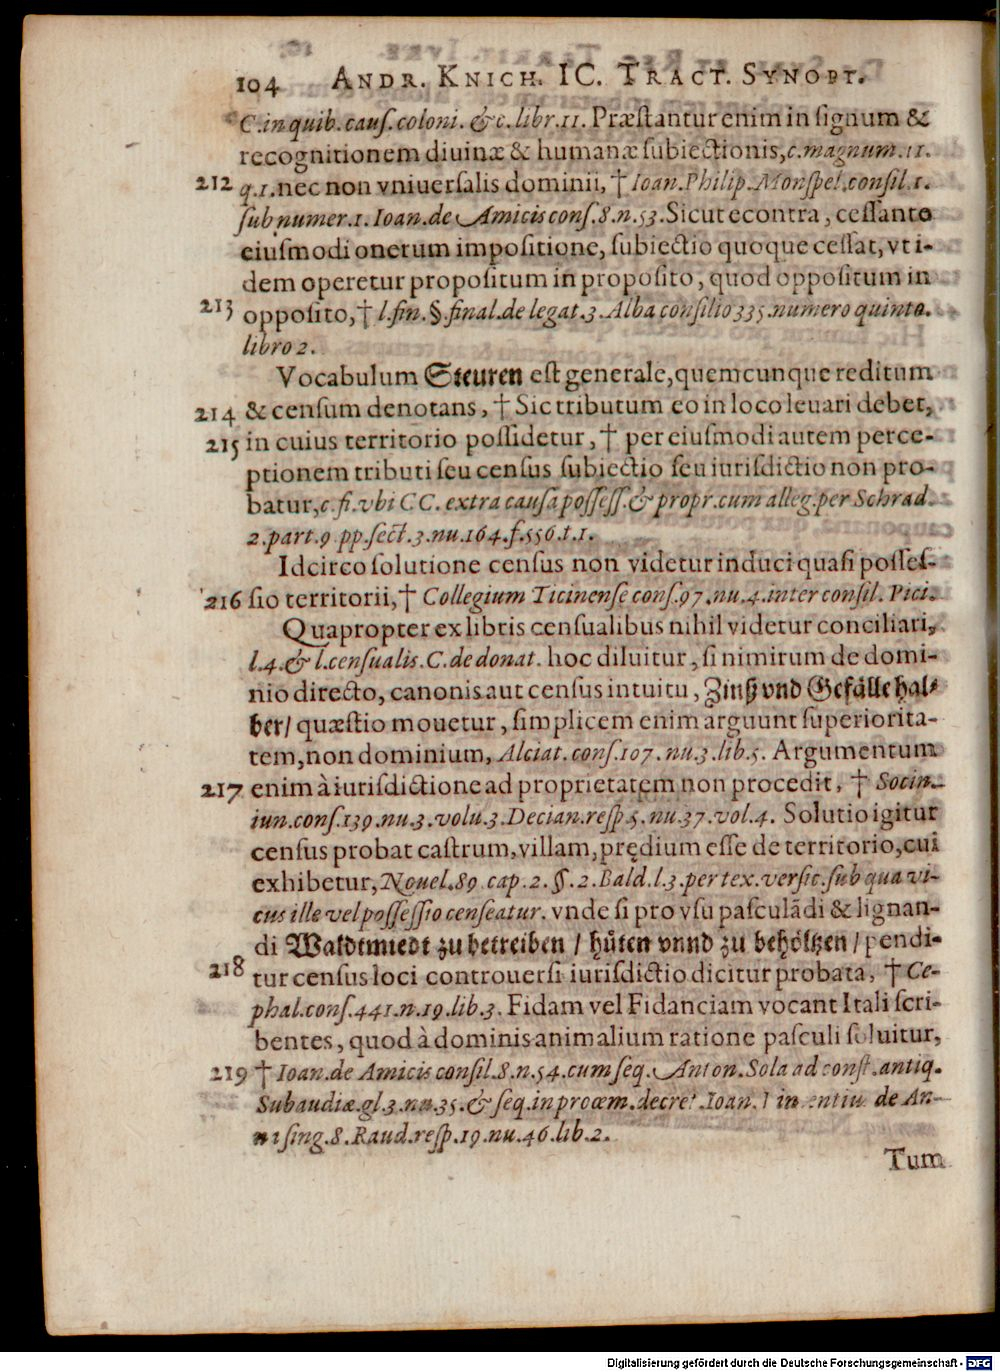 104 ANDR. KNICH. IC. TRACT. SYNOPT.
C. in quib. cauſ. coloni. & c. libr. 11. Præſtantur enim in ſignum &
recognitionem diuinæ & humanæ ſubiectionis, c. magnum. 11.
212 q. 1. nec non vniuerſalis dominii, † Ioan. Philip. Monſpel. conſil. 1.
ſub numer. 1. Ioan. de Amicis conſ. 8. n. 53. Sicut econtra, ceſſante
eiuſmodi onerum impoſitione, ſubiectio quoque ceſſat, vt i-
dem operetur propoſitum in propoſito, quod oppoſitum in
213 oppoſito, † l. fin. §. final. de legat. 3. Alba conſilio 335. numero quinto.
libro 2.
Vocabulum Steuren eſt generale, quemcunque reditum
214 & cenſum denotans, † Sic tributum eo in loco leuari debet,
215 in cuius territorio poſſidetur, † per eiuſmodi autem perce-
ptionem tributi ſeu cenſus ſubiectio ſeu iurisdictio non pro-
batur, c. fi. vbi CC. extra cauſa poſſeſſ. & propr. cum alleg. per Schrad.
2. part. 9. pp. ſect. 3. nu. 164. f. 556. t. 1.
Idcirco ſolutione cenſus non videtur induci quaſi poſſeſ-
216 ſio territorii, † Collegium Ticinenſe conſ. 97. nu. 4. inter conſil. Pici.
Quapropter ex libris cenſualibus nihil videtur conciliari,
l. 4. & l. cenſualis. C. de donat. hoc diluitur, ſi nimirum de domi-
nio directo, canonis aut cenſus intuitu, Zinß vnd Gefälle hal-
ber/ quæſtio mouetur, ſimplicem enim arguunt ſuperiorita-
tem, non dominium, Alciat. conſ. 107. nu. 3. lib. 5. Argumentum
217 enim à iurisdictione ad proprietatem non procedit, † Socin.
iun. conſ. 139. nu. 3. volu. 3. Decian. reſp. 5. nu. 37. vol. 4. Solutio igitur
cenſus probat caſtrum, villam, prędium eſſe de territorio, cui
exhibetur, Nouel. 89. cap. 2. §. 2. Bald. l. 3. per tex. verſic. ſub qua vi-
cus ille vel poſſeſſio cenſeatur. vnde ſi pro vſu paſculādi & lignan-
di Waldtmiedt zu betreiben / hüten vnnd zu behöltzen / pendi-
218 tur cenſus loci controuerſi iurisdictio dicitur probata, † Ce-
phal. conſ. 441. n. 19. lib. 3. Fidam vel Fidanciam vocant Itali ſcri-
bentes, quod à dominis animalium ratione paſculi ſoluitur,
219 † Ioan. de Amicis conſil. 8. n. 54. cum ſeq. Anton. Sola ad conſt. antiq.
Subaudiæ. gl. 3. nu. 35. & ſeq. in proœm. decret. Ioan. de An-
ſing. 8. Raud. reſp. 19. nu. 46. lib. 2.
Tum
Digitalisierung gefördert durch die Deutsche Forschungsgemeinschaft - DFG